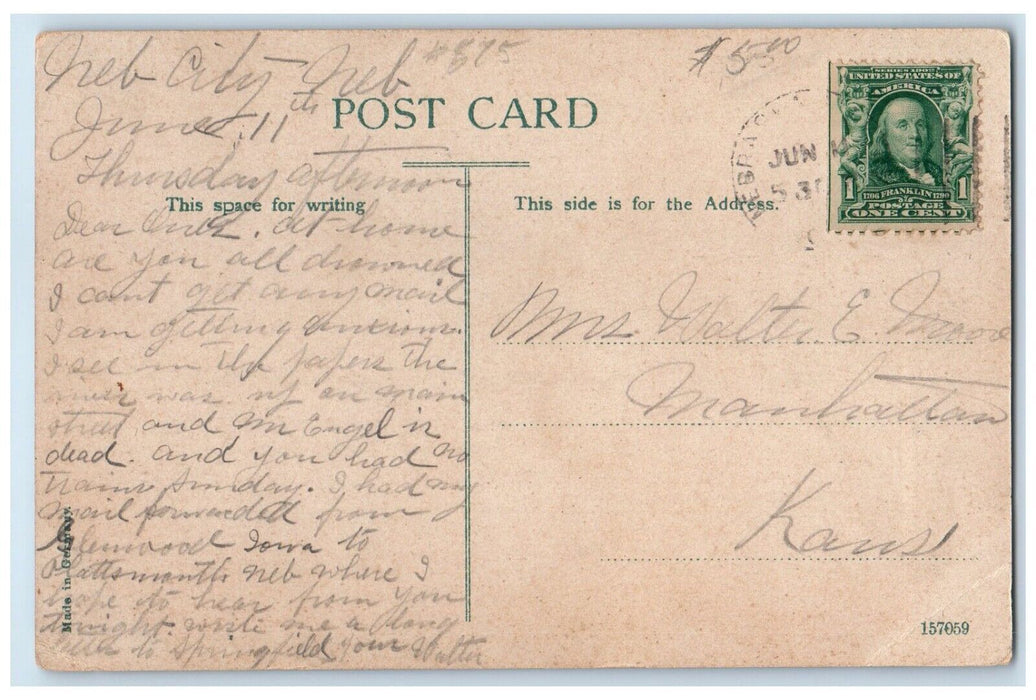 Neb City Neb
#575
$5.00
June 11th
POST CARD
Thursday afternoon
This space for writing
Dear Inez. At home
are you all drowned
I cant get any mail
I am getting anxious.
I see in the papers the
river was up on main
street and Mr Engel is
dead. and you had no
trains Sunday. I had my
mail forwarded from
Glenwood Iowa to
Plattsmouth Neb where I
hope to hear from you
tonight. write me a long
letter to Springfield your Walter
Made in Germany.
SERIES 1902
UNITED STATES OF
AMERICA
1 1706 FRANKLIN 1790 1
POSTAGE
ONE CENT
JUN
This side is for the Address.
Mrs Walter E. Moore
Manhattan
Kans
157059